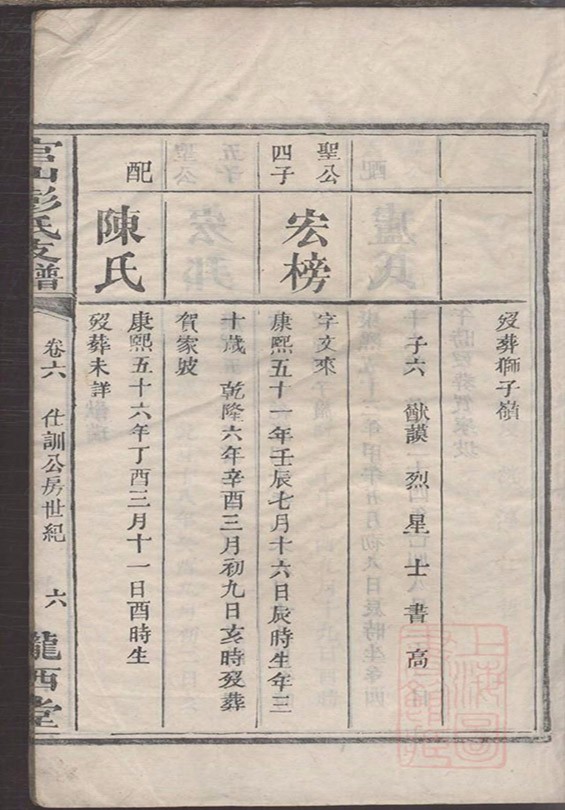 歿葬獅子嶺
子六 猷謨烈星士書 高
聖公
四子
宏榜
字文來
康熙五十一年壬辰七月十六日辰時生年三
十歲 乾隆六年辛酉三月初九日亥時歿葬
賀家坡
配
陳氏
康熙五十六年丁酉三月十一日酉時生
歿葬未詳
官山彭氏支譜
卷六 仕訓公房世紀 六
隴西堂
上海圖書館藏